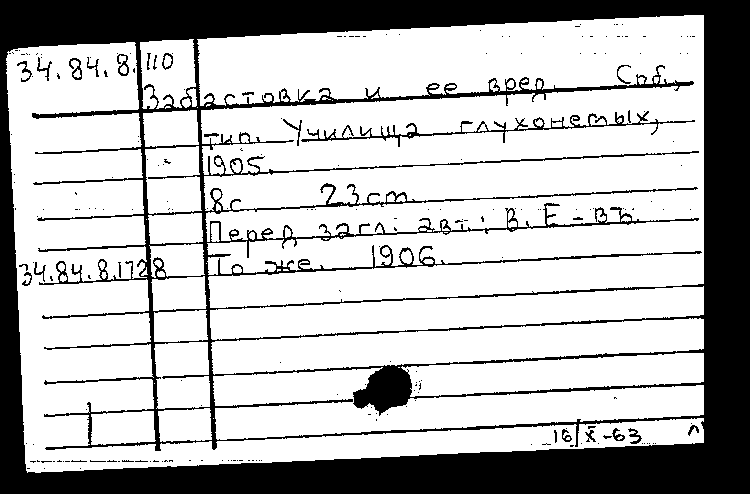 34.84.8.110
Забастовка и ее вред. Спб.,
тип. Училища глухонемых,
1905.
8с. 23 cm.
Перед загл. авт.: В. Е-въ.
34.84.8.1728 То же. 1906.
16/X-63